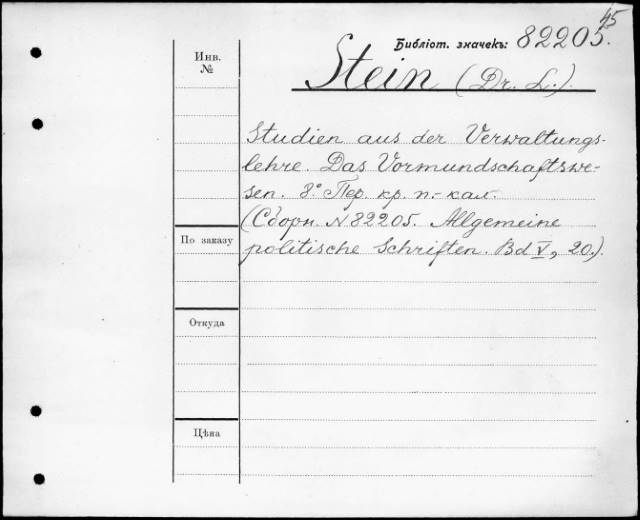 45
Библіот. значекъ: 82205.
Инв.
№
Stein (Dr. L.).
Studien aus der Verwaltungs-
lehre. Das Vormundschaftswe-
sen. 8° Пер. кр. п.-кал.
(Сборн. № 82205. Allgemeine
По заказу
politische Schriften. Bd V, 20.)
Откуда
Цѣна